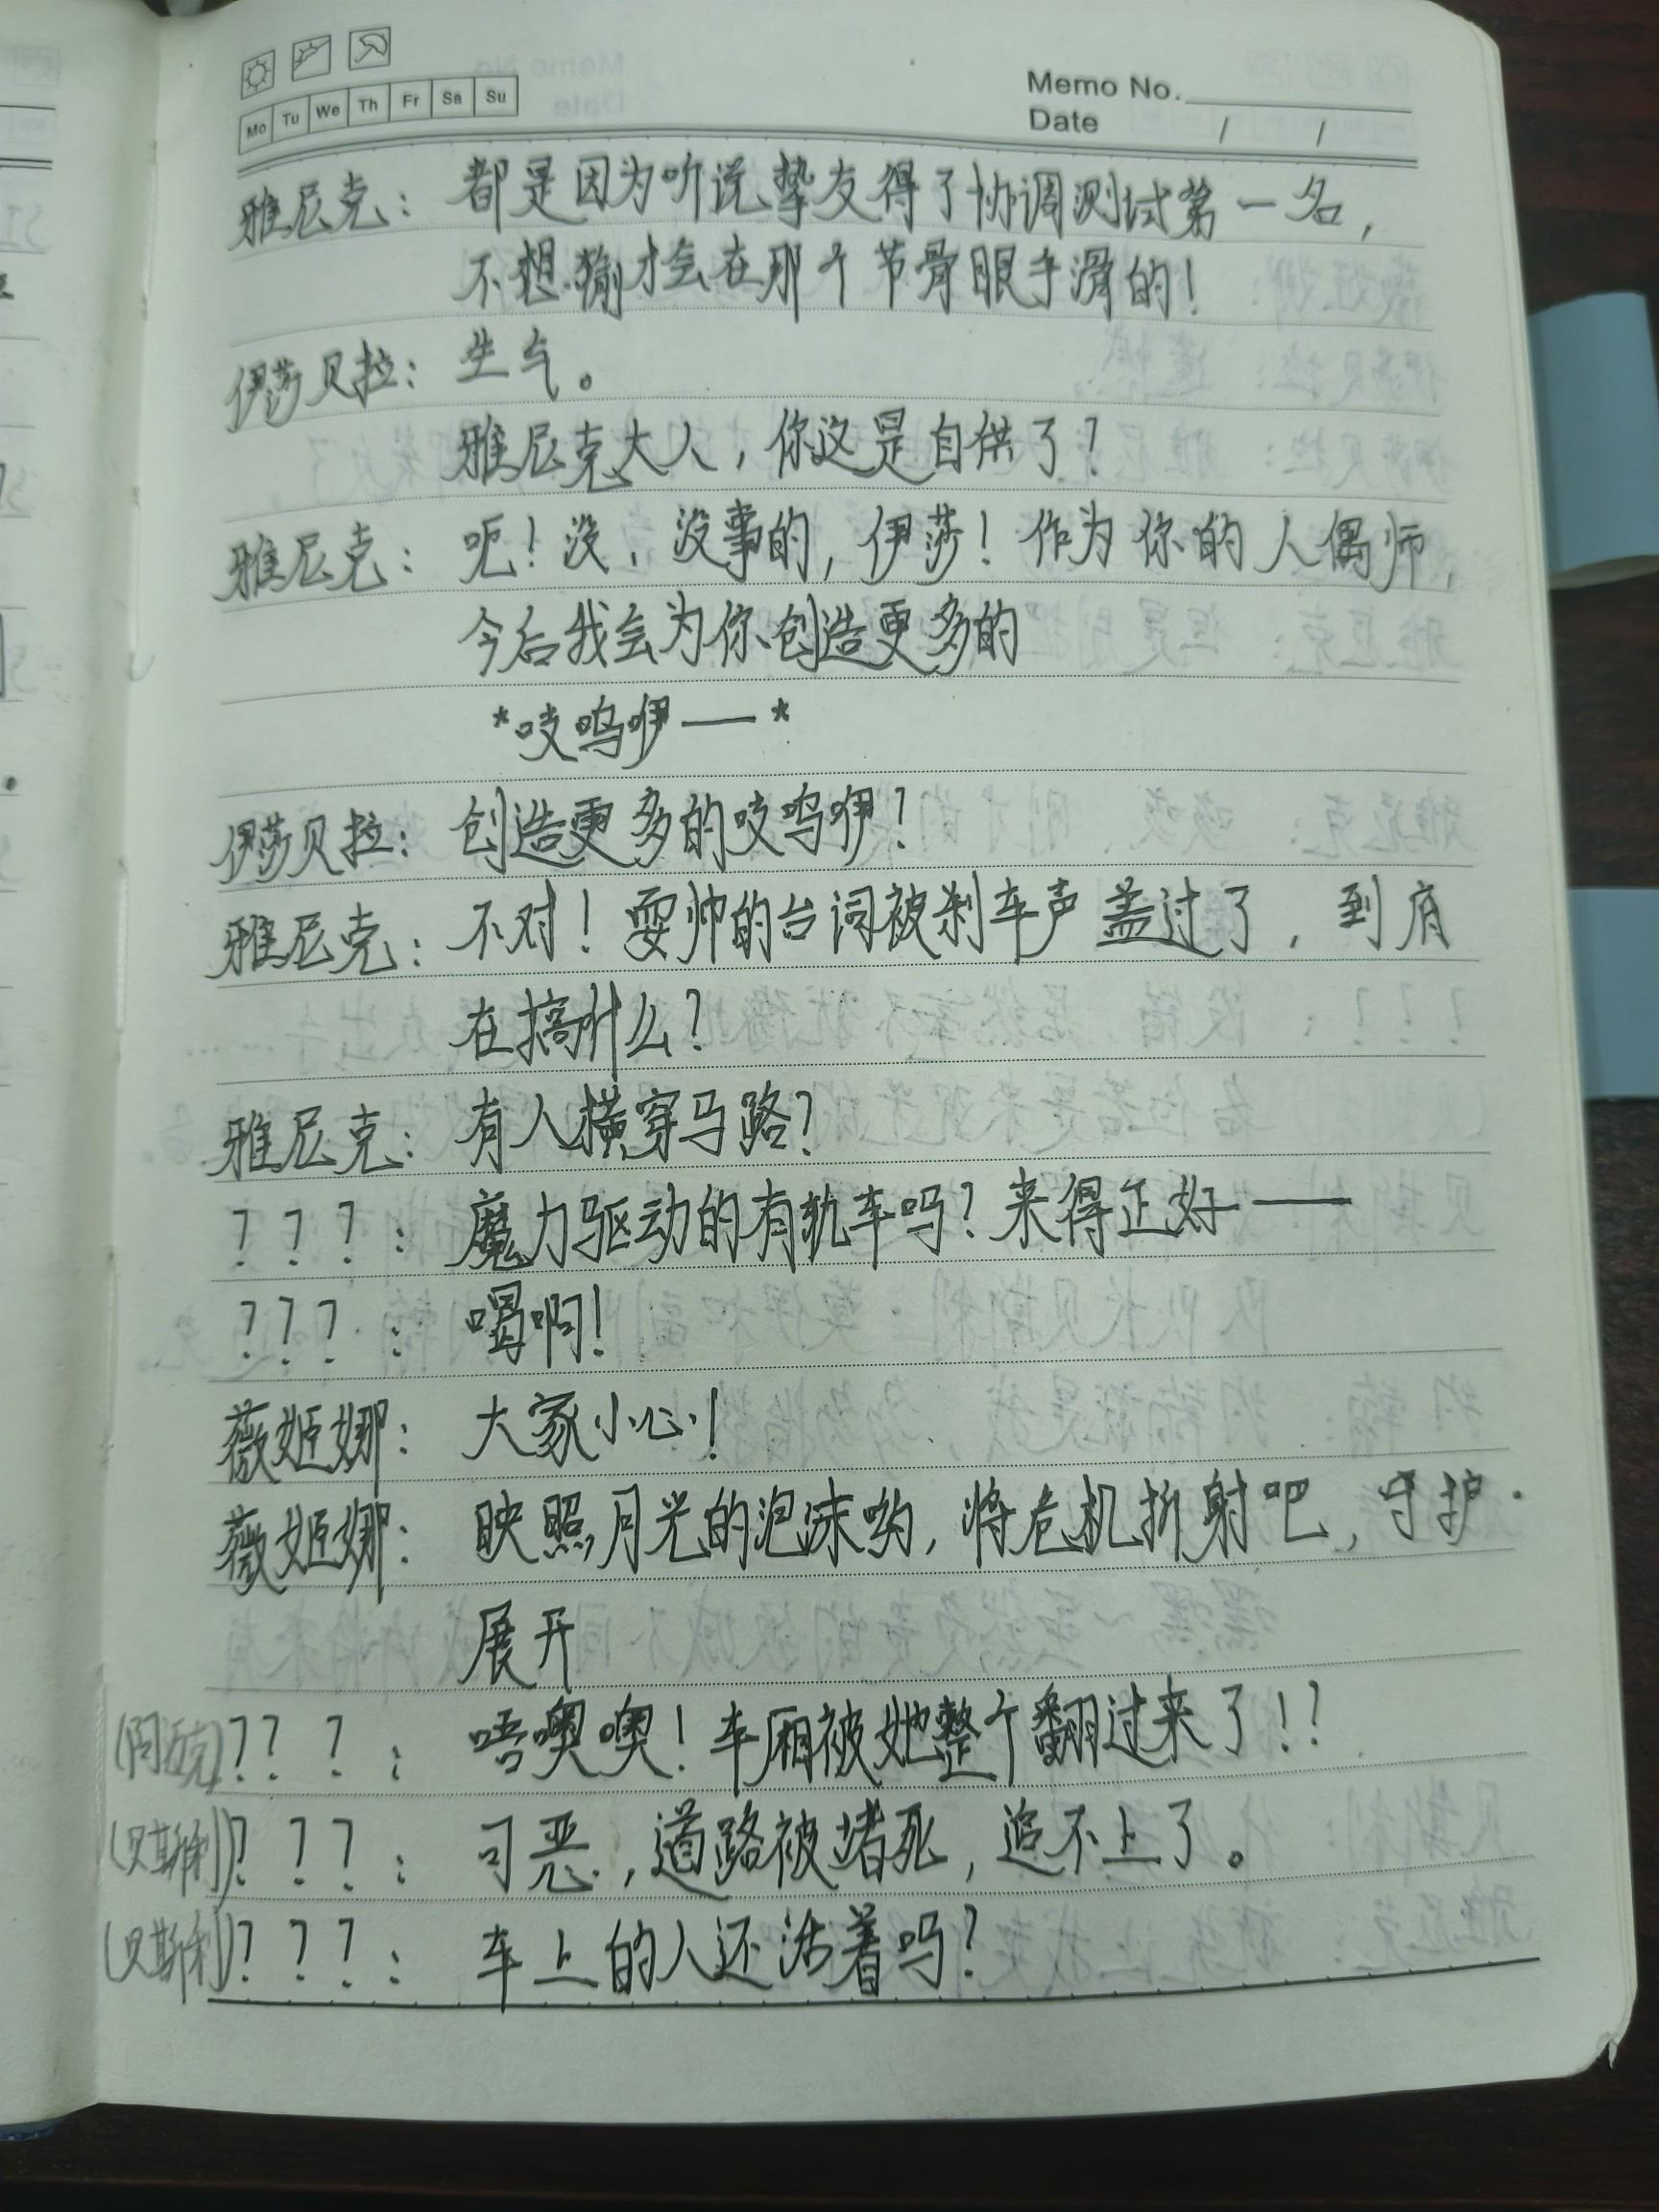 Mo Tu We Th Fr Sa Su
Memo No.
Date / /
雅尼克：都是因为听说挚友得了协调测试第一名，
不想输才会在那个节骨眼手滑的！
伊莎贝拉：生气。
雅尼克大人，你这是自供了？
雅尼克：呃！没，没事的，伊莎！作为你的人偶师，
今后我会为你创造更多的
*吱呜咿——*
伊莎贝拉：创造更多的吱呜咿？
雅尼克：不对！耍帅的台词被刹车声盖过了，到底
在搞什么？
雅尼克：有人横穿马路？
？？？：魔力驱动的有轨车吗？来得正好——
？？？：喝啊！
薇姬娜：大家小心！
薇姬娜：映照月光的泡沫哟，将危机折射吧，守护·
展开
(阿克)？？？：唔噢噢！车厢被她整个翻过来了！？
(贝斯利)？？？：可恶，道路被堵死，追不上了。
(贝斯利)？？？：车上的人还活着吗？